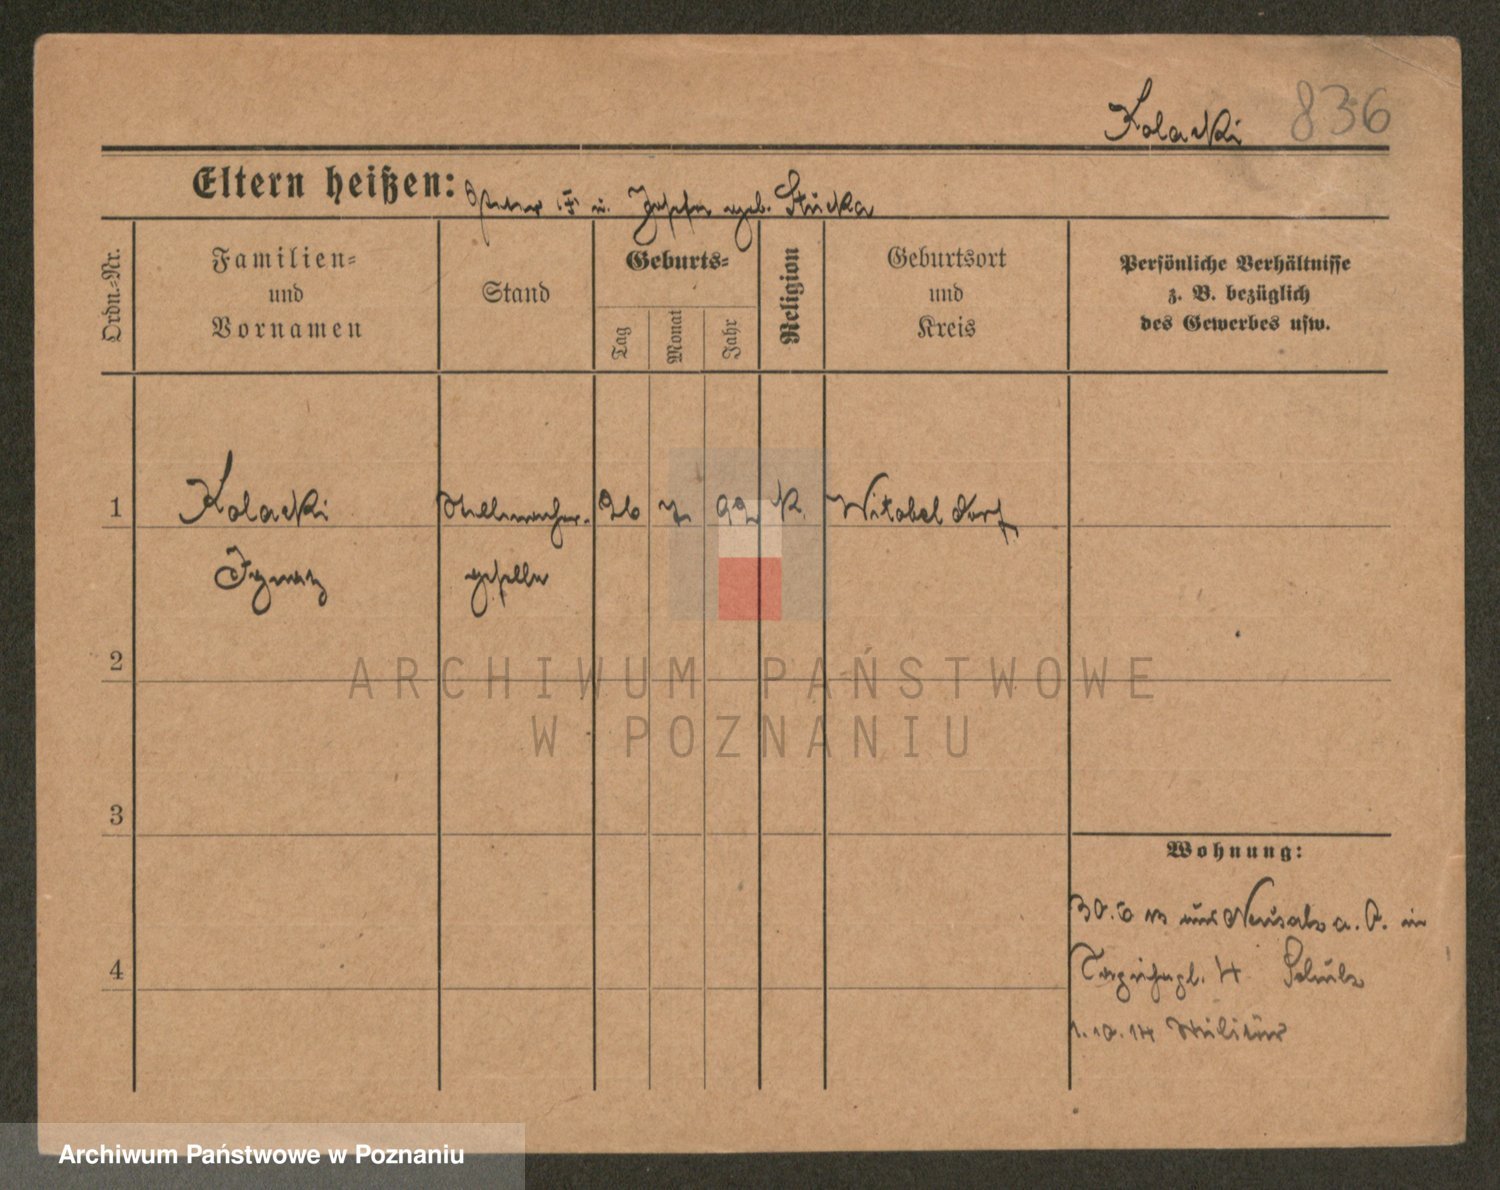 Kolacki 836
Eltern heißen: Peter u. Josefa geb. Stucka
Ordn.-Nr.
Familien-
und
Vornamen
Stand
Geburts-
Tag
Monat
Jahr
Religion
Geburtsort
und
Kreis
Persönliche Verhältnisse
z. B. bezüglich
des Gewerbes usw.
1 Kolacki Stellmacher- 26 7 92 K. Witobel Dorf
Ignatz geselle
2
ARCHIWUM PAŃSTWOWE
W POZNANIU
3
Wohnung:
30. 6 13 aus Neusalz a. O. in
4 4 Schulz
1. 10. 14 Militär
Archiwum Państwowe w Poznaniu